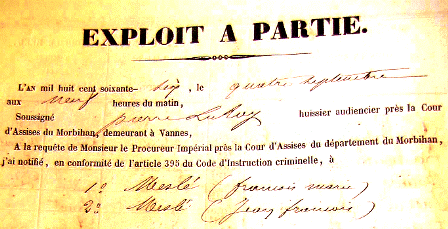 EXPLOIT A PARTIE.
L'AN mil huit cent soixante-dix, le quatre septembre
aux neuf heures du matin,
Soussigné pierre LeRoy huissier audiencier près la Cour
d'Assises du Morbihan, demeurant à Vannes,
A la requête de Monsieur le Procureur Impérial près la Cour d'Assises du département du Morbihan,
j'ai notifié, en conformité de l'article 395 du Code d'Instruction criminelle, à
1º Meslé (francois marie)
2º Meslé (Jean francois)